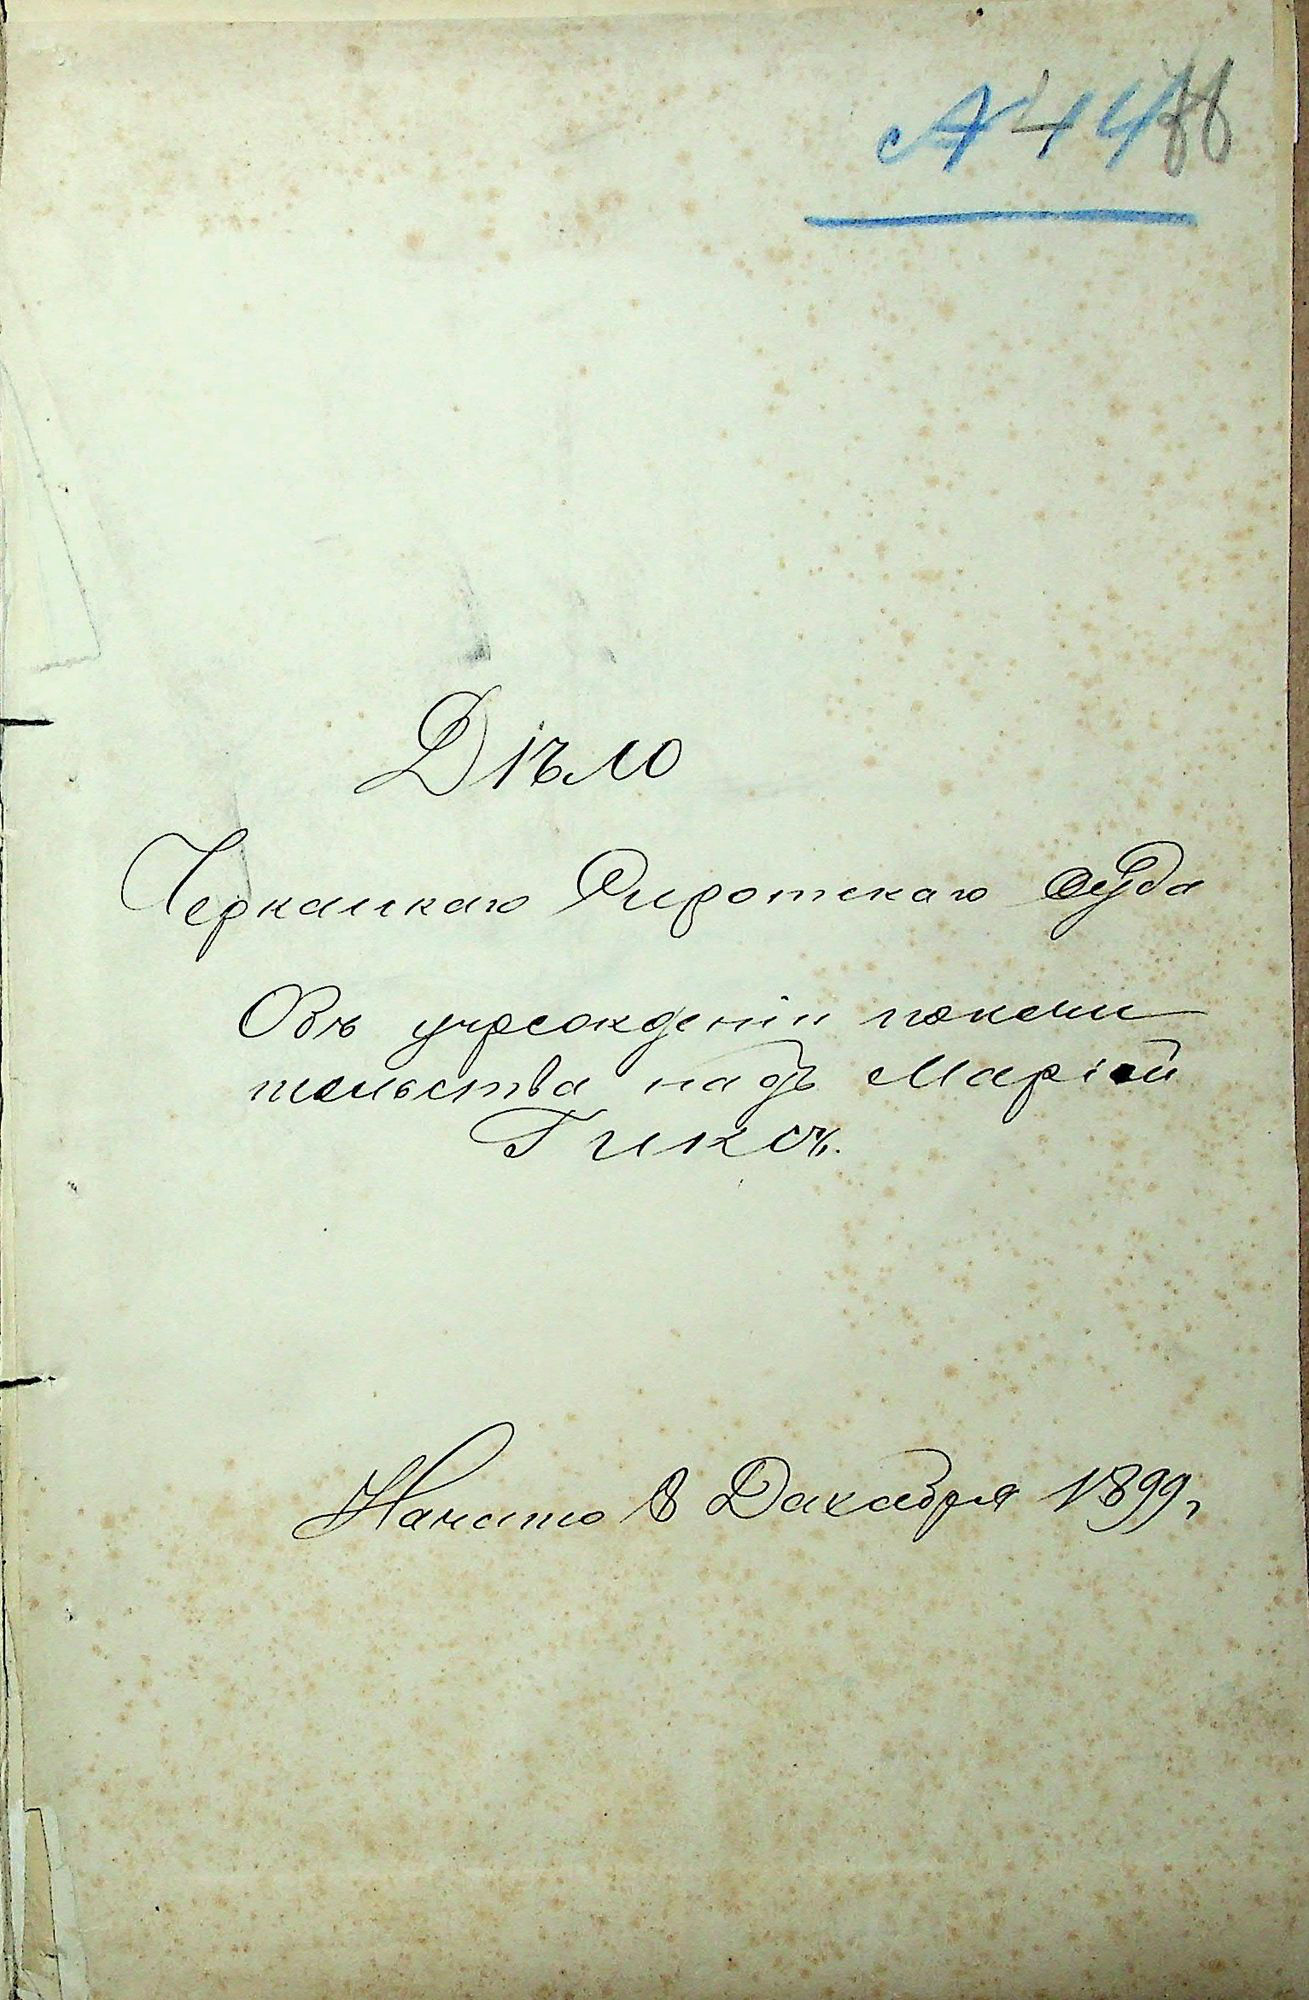 Дѣло
Черкаскаго Сиротскаго Суда
Объ учрежденіи попечи
тельства надъ Маріей
Гиксъ.
Начато 8 Декабря 1899 г.